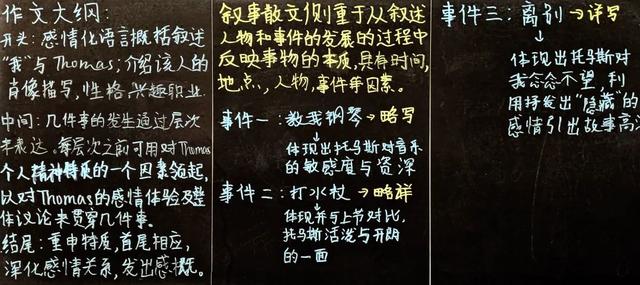 作文大纲:
开头: 感情化语言概括叙述
"我"与Thomas; 介绍该人的
肖像描写, 性格, 兴趣职业.
中间: 几件事的发生通过层次
来表达。每层次之前可用对Thomas
个人精神特质的一个因素领起,
以对Thomas的感情体验及整
体议论来贯穿几件事。
结尾: 重申特质, 首尾相应,
深化感情关系, 发出感慨。
叙事散文侧重于从叙述
人物和事件的发展的过程中
反映事物的本质, 具有时间,
地点, 人物, 事件等因素。
事件一: 教我钢琴 → 略写
体现出托马斯对音乐
的敏感度与资深
事件二: 打水仗 → 略祥
体现并与上节对比,
托马斯活泼与开朗
的一面
事件三: 离别 → 详写
体现出托马斯对
我念念不望, 利
用抒发出"隐藏"的
感情引出故事高